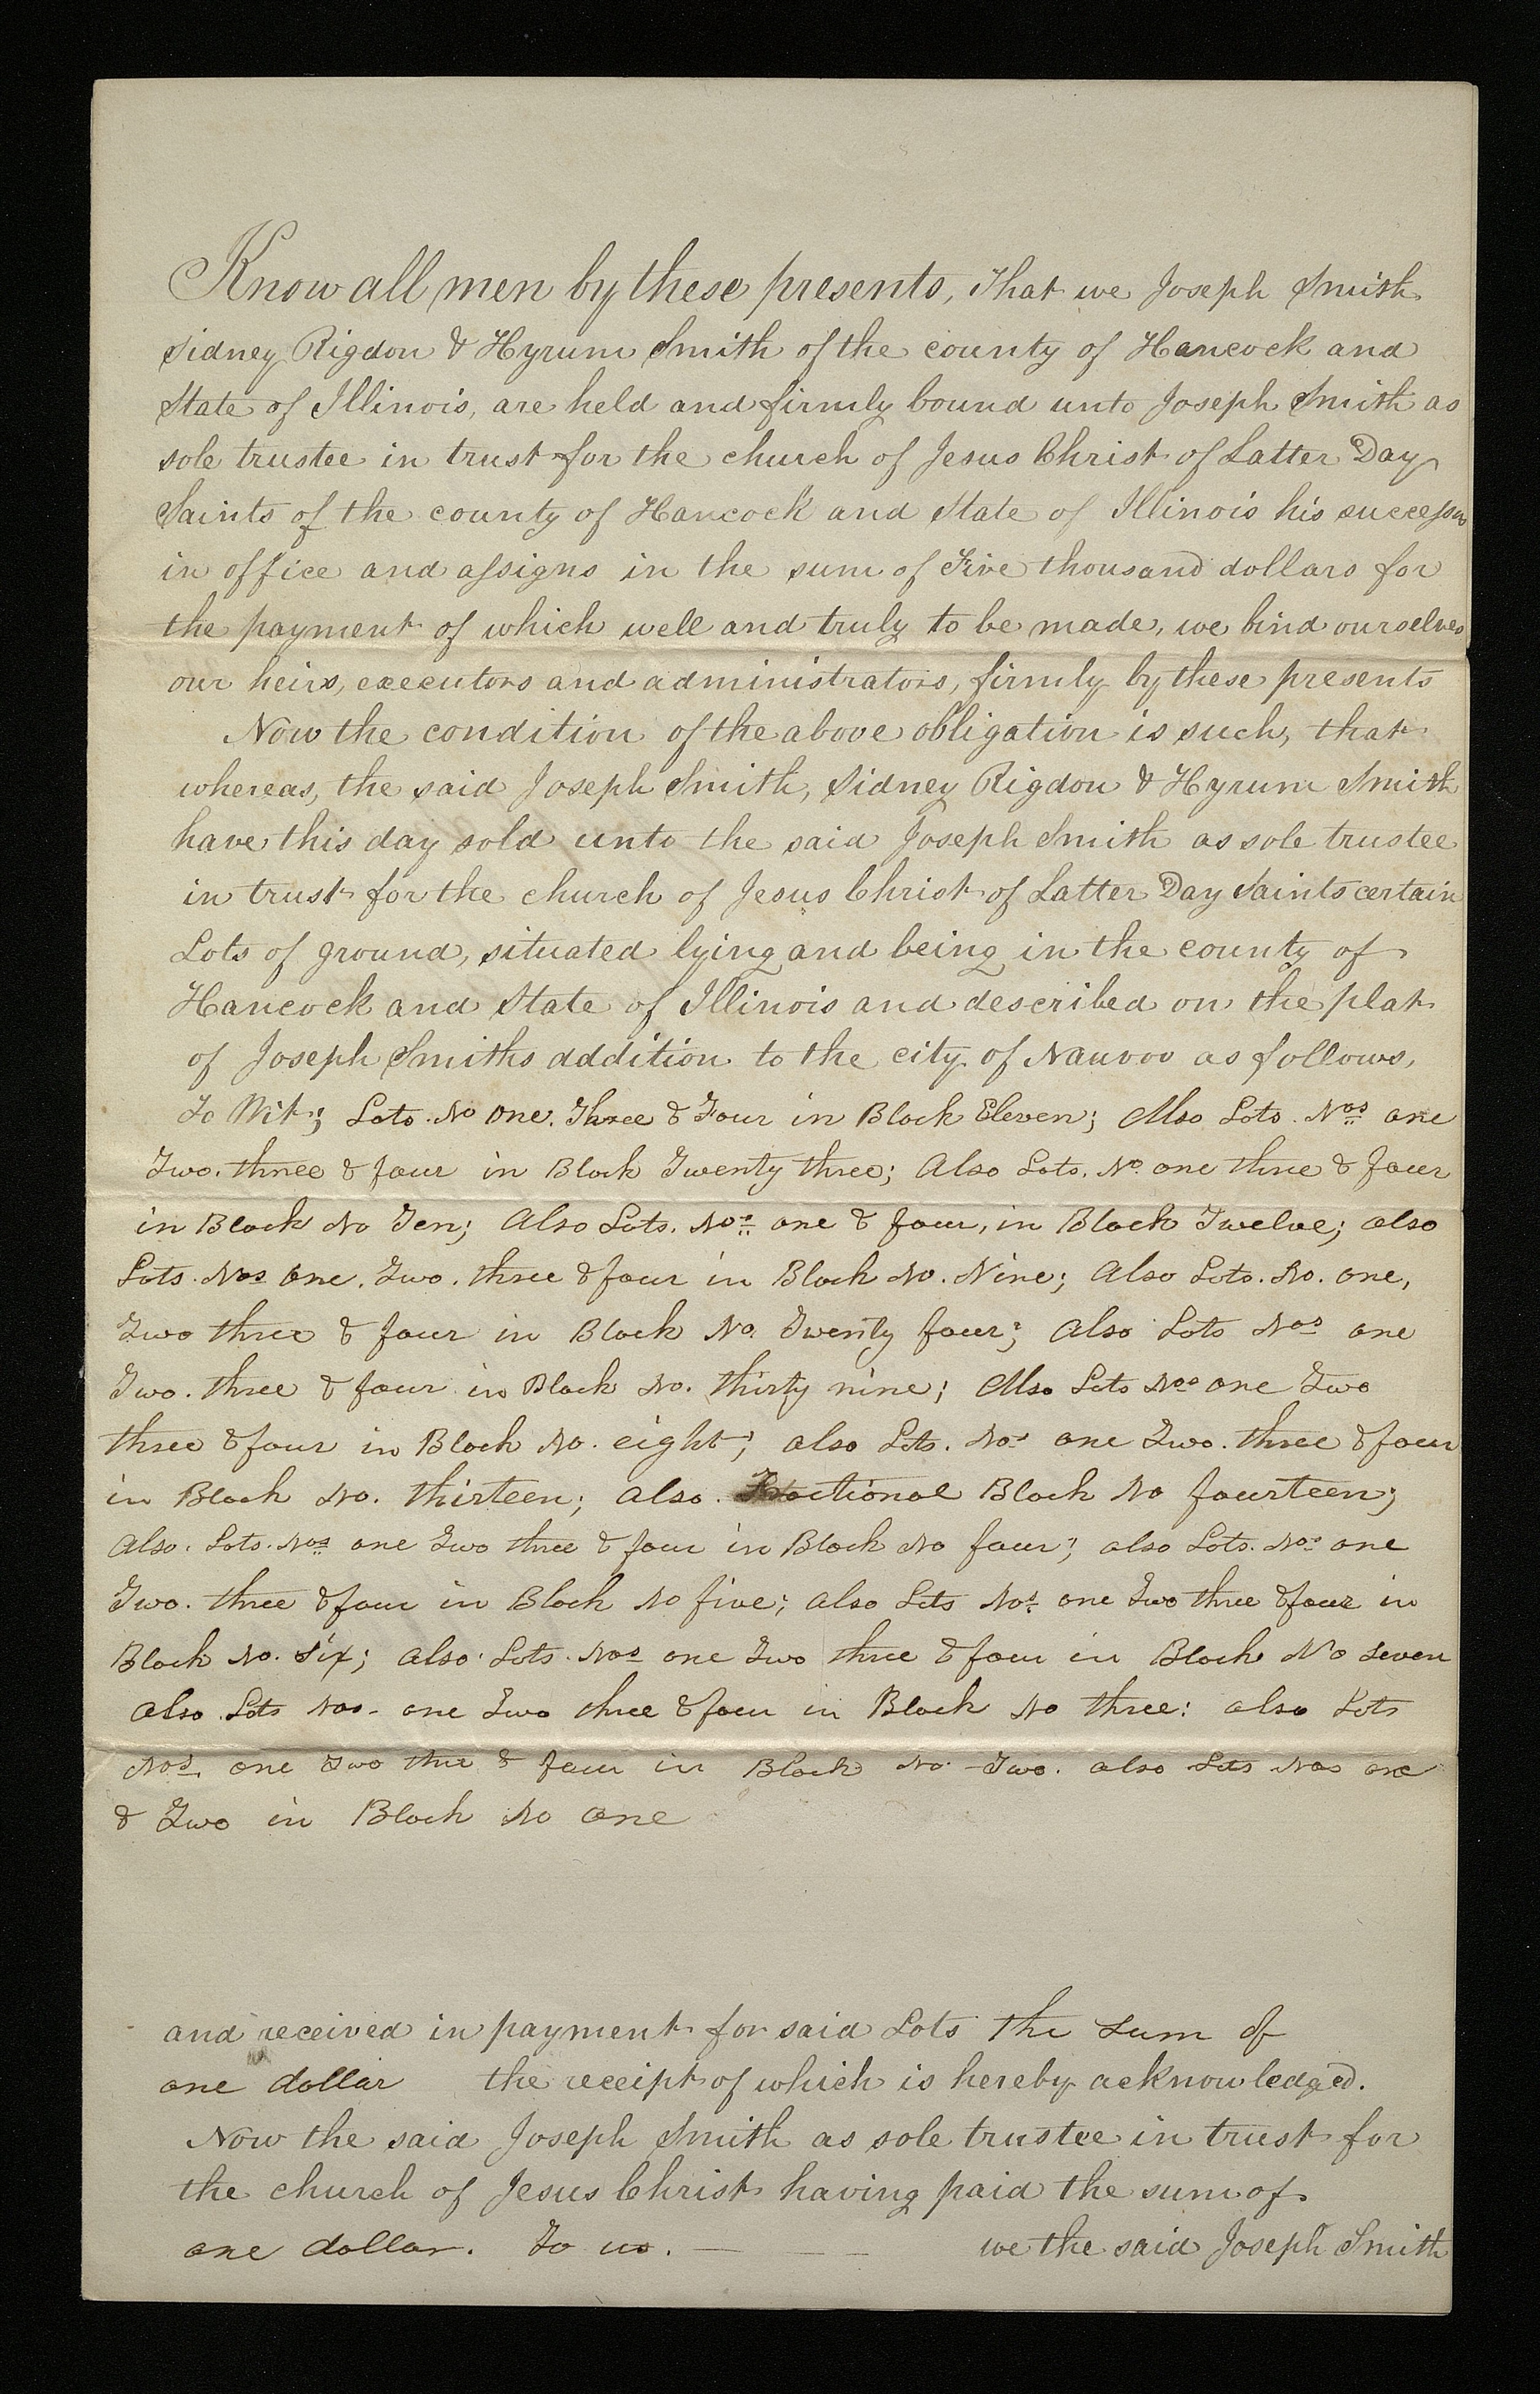 Know all men by these presents, That we Joseph Smith
Sidney Rigdon & Hyrum Smith of the county of Hancock and
State of Illinois, are held and firmly bound unto Joseph Smith as
sole trustee in trust for the church of Jesus Christ of Latter Day
Saints of the county of Hancock and State of Illinois his successor
in office and assigns in the sum of Five thousand dollars for
the payment of which well and truly to be made, we bind ourselves
our heirs, executors and administrators, firmly by these presents
Now the condition of the above obligation is such, that
whereas, the said Joseph Smith, Sidney Rigdon & Hyrum Smith
have this day sold unto the said Joseph Smith as sole trustee
in trust for the church of Jesus Christ of Latter Day Saints certain
Lots of ground, situated lying and being in the county of
Hancock and State of Illinois and described on the plat
of Joseph Smiths addition to the city of Nauvoo as follows,
To Wit; Lots. No one. Three & Four in Block Eleven; Also Lots. Nos one
Two. three & four in Block Twenty three; Also Lots. No. one three & four
in Block No Ten; Also Lots. Nos one & four, in Block Twelve; also
Lots. Nos one. Two. three & four in Block No. Nine; Also Lots. No. one,
Two three & four in Block No. Twenty four; also Lots Nos one
Two. three & four in Block No. thirty nine; Also Lots Nos one Two
three & four in Block No. eight; also Lots. Nos one Two. three & four
in Block No. thirteen; also. Fractional Block No fourteen;
Also. Lots. Nos one Two three & four in Block No four; also Lots. Nos one
Two. three & four in Block No five; also Lots Nos one Two three & four in
Block No. six; also Lots. Nos one Two three & four in Block No seven
also Lots Nos. one Two three & four in Block No three: also Lots
Nos. one Two thre & four in Block No. Two. also Lots Nos one
& Two in Block No one
and received in payment for said Lots the sum of
one dollar the receipt of which is hereby acknowledged.
Now the said Joseph Smith as sole trustee in trust for
the church of Jesus Christ having paid the sum of
one dollar. To us. — — we the said Joseph Smith